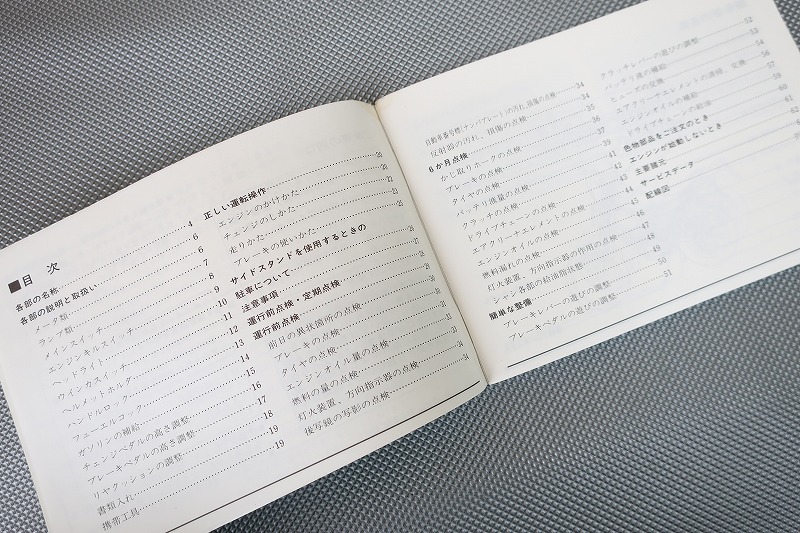 ■目 次
各部の名称 4
各部の説明と取扱い 6
メータ類 6
ランプ類 7
メインスイッチ 8
エンジンキルスイッチ 9
ヘッドライト 10
ウインカスイッチ 11
ヘルメットホルダ 12
ハンドルロック 13
フューエルコック 14
ガソリンの補給 15
チェンジペダルの高さ調整 16
ブレーキペダルの高さ調整 17
リヤクッションの調整 18
書類入れ 19
携帯工具 19
正しい運転操作 20
エンジンのかけかた
チェンジのしかた
走りかた 23
ブレーキの使いかた 25
サイドスタンドを使用するときの
駐車について
注意事項
運行前点検・定期点検
運行前点検
前日の異状箇所の点検
ブレーキの点検
タイヤの点検
エンジンオイル量の点検
燃料の量の点検
灯火装置、方向指示器の点検
後写鏡の写影の点検
自動車番号標(ナンバプレート)の汚れ、損傷の点検 34
反射器の汚れ、損傷の点検 34
6か月点検 35
かじ取りホークの点検 36
ブレーキの点検 37
タイヤの点検 39
バッテリ液量の点検 41
クラッチの点検 42
ドライブチェーンの点検 43
エアクリーナエレメントの点検 44
エンジンオイルの点検 45
燃料漏れの点検 46
灯火装置、方向指示器の作用の点検 47
シャシ各部の給油脂状態 48
簡単な整備 49
ブレーキレバーの遊びの調整 50
ブレーキペダルの遊びの調整 51
クラッチレバーの遊びの調整 52
バッテリ液の補給 53
ヒューズの交換 54
エアクリーナエレメントの清掃、交換 56
エンジンオイルの補給 57
ドライブチェーンの給油 59
色物部品をご注文のとき 60
エンジンが始動しないとき 61
主要諸元 62
サービスデータ
配線図